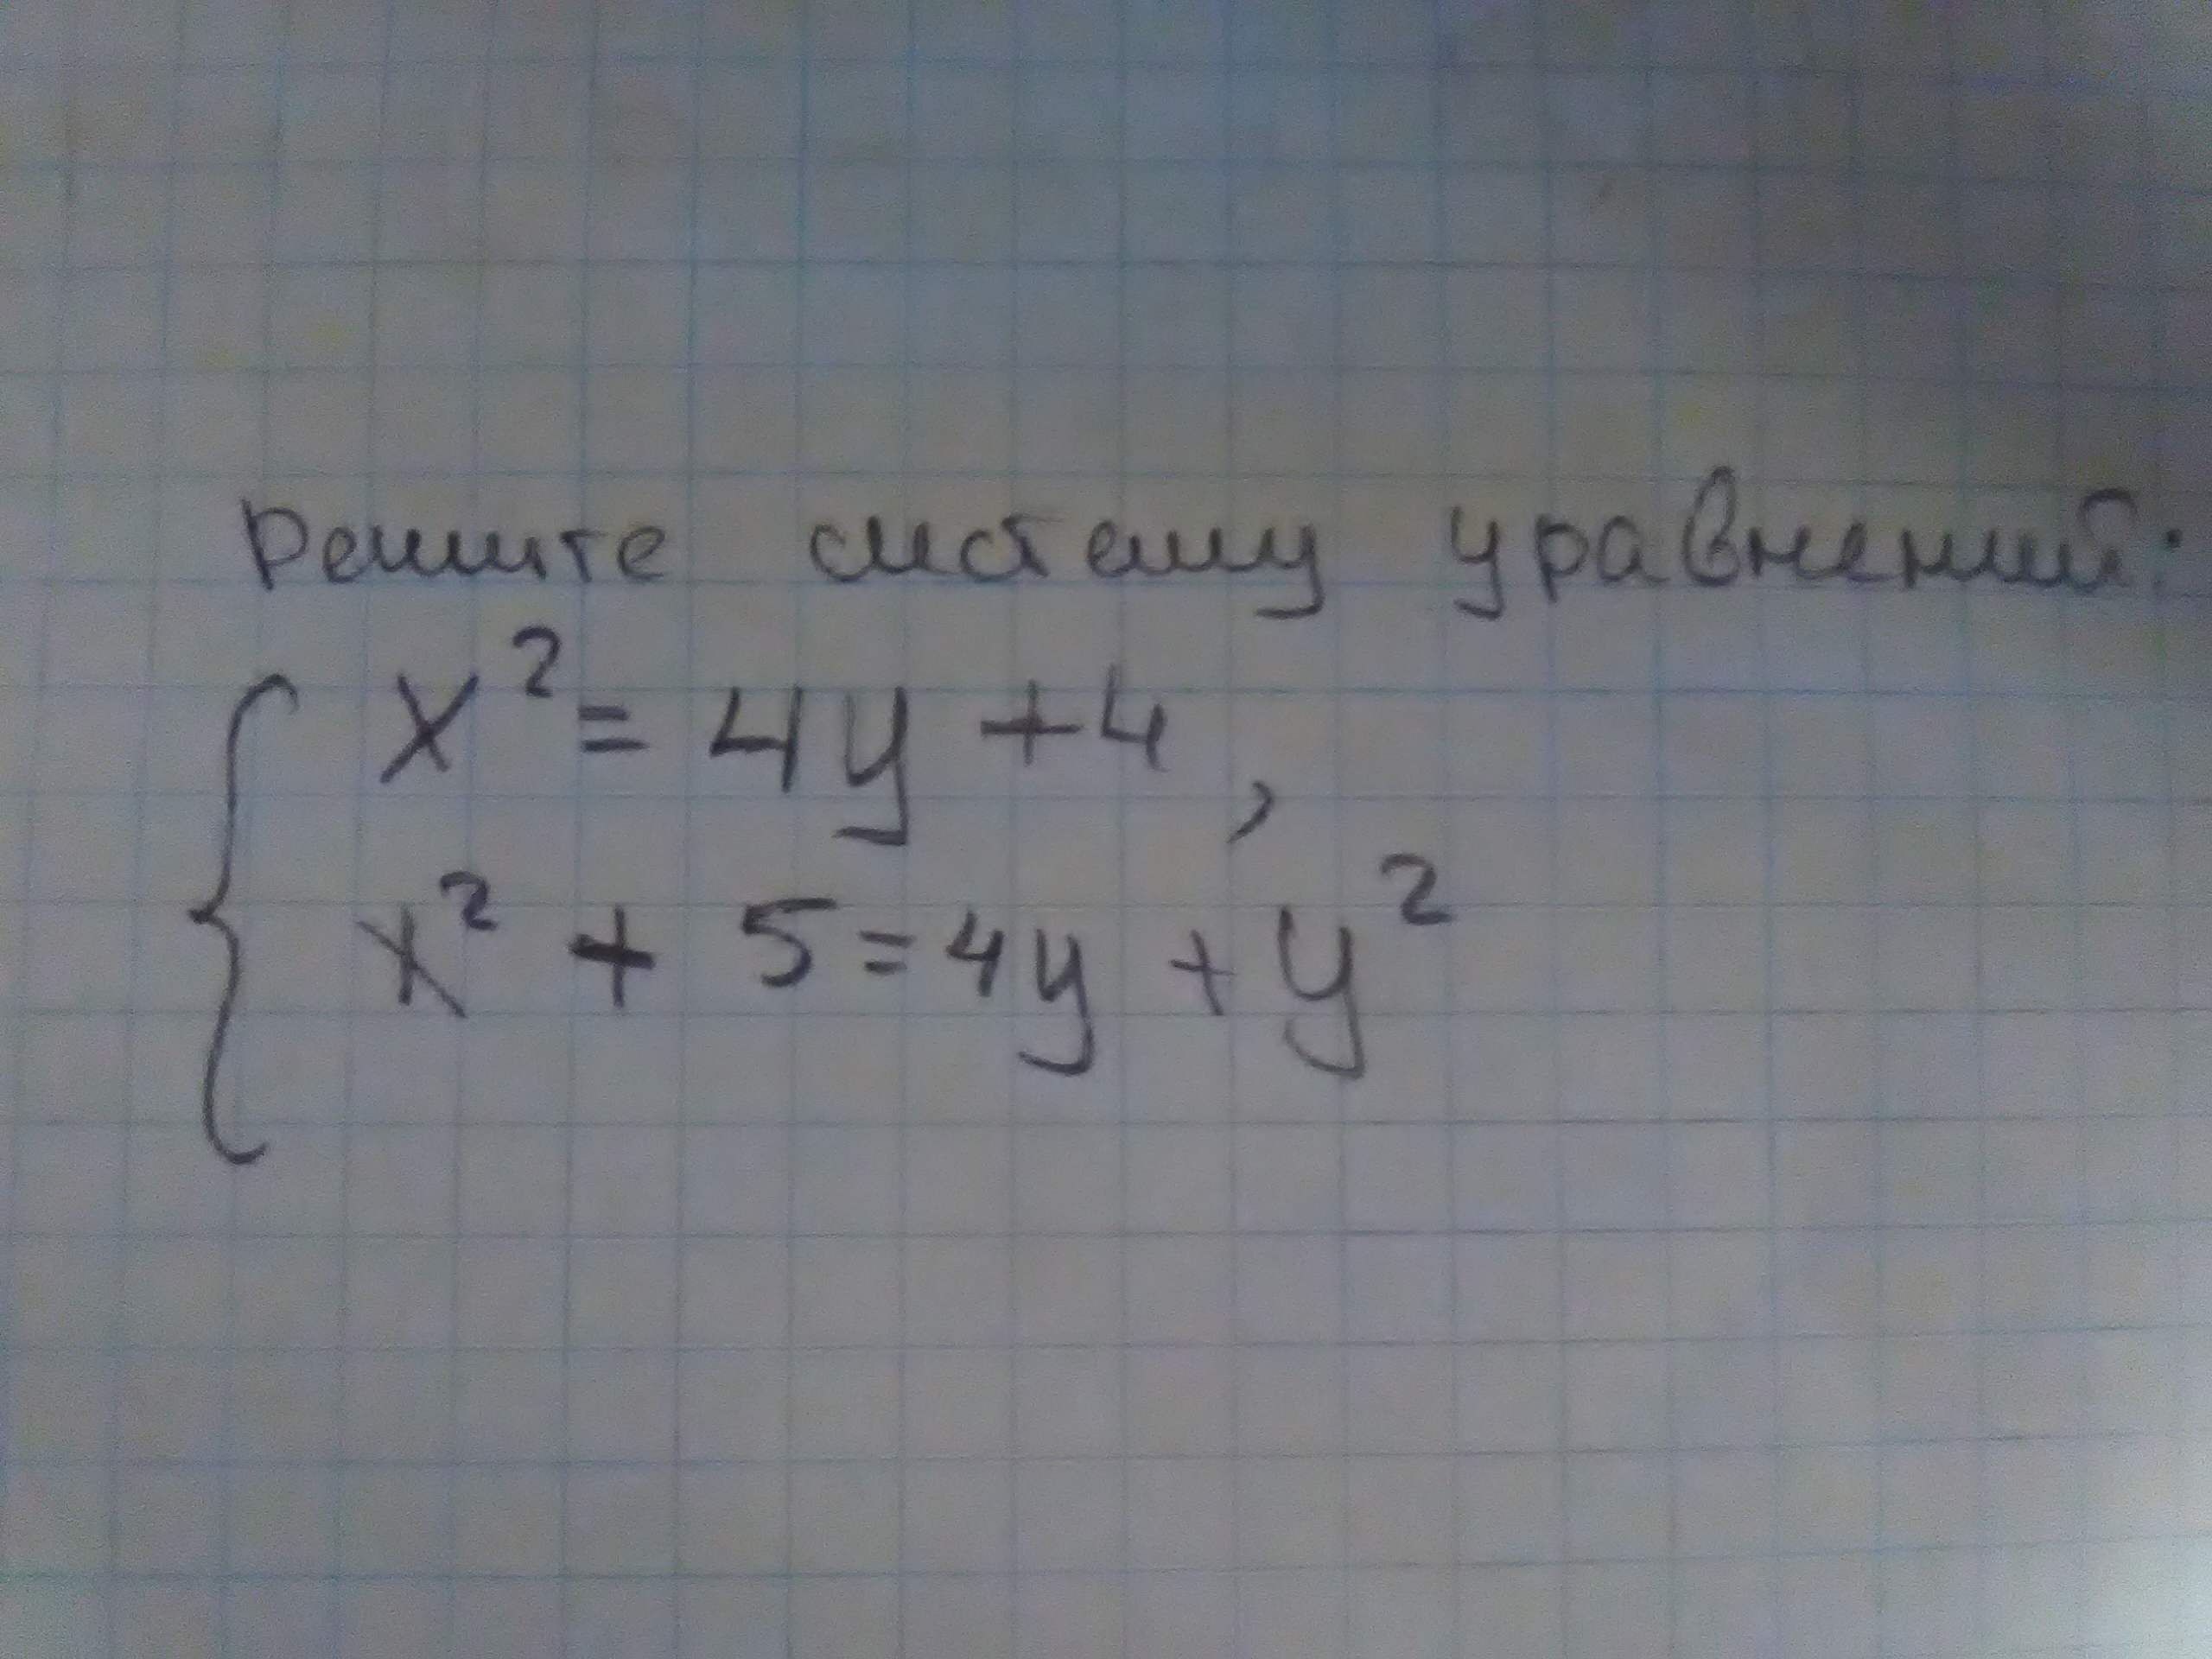 Решите систему уравнений:
x² = 4y + 4,
x² + 5 = 4y + y²